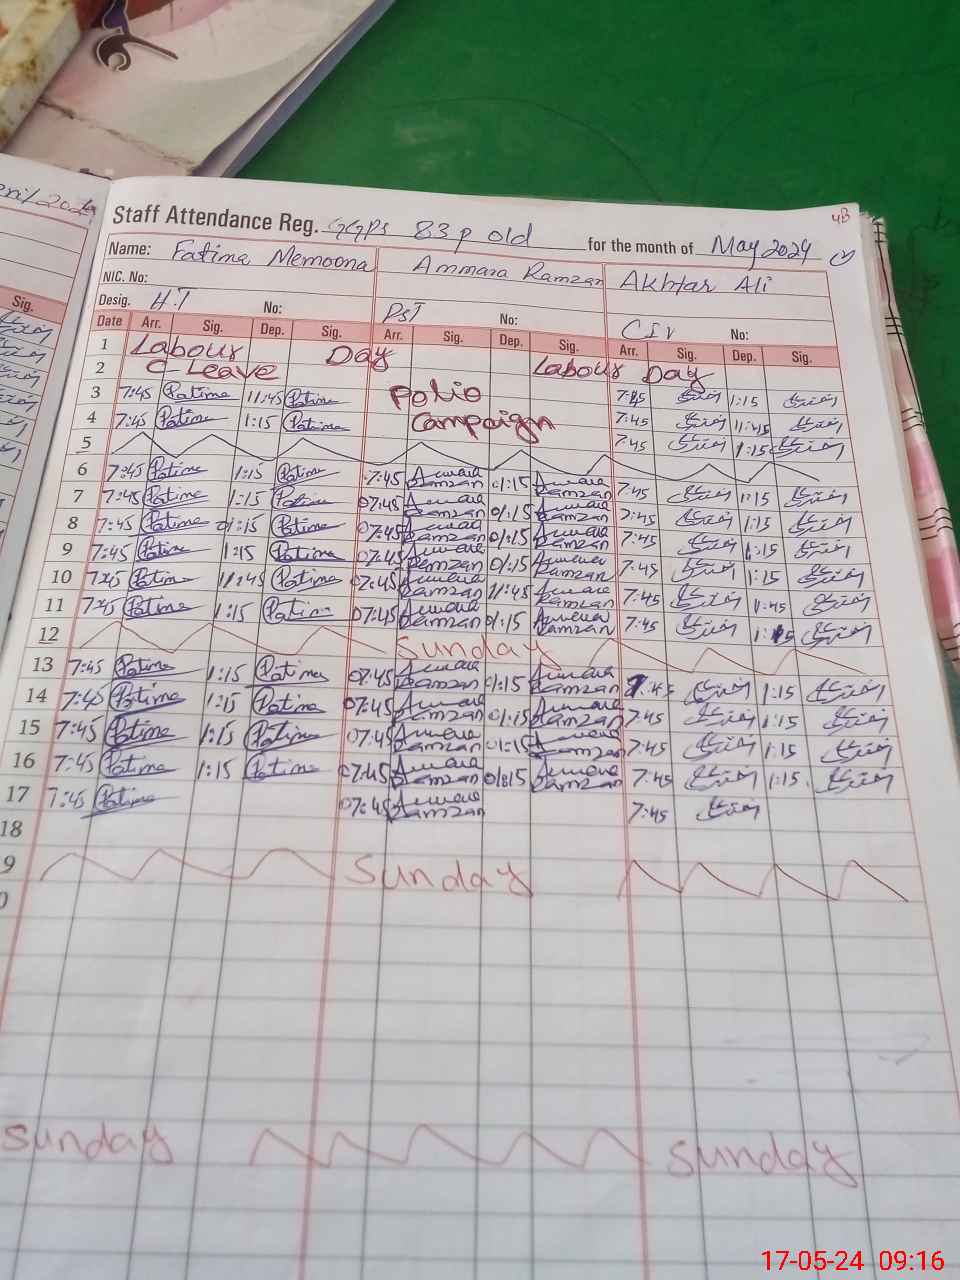 Staff Attendance Reg. GGPS 83 P old for the month of May 2024
Name: Fatima Memoona Ammara Ramzan Akhtar Ali
NIC. No:
Desig. H.T No: PST No: CIV No:
Date Arr. Sig. Dep. Sig. Arr. Sig. Dep. Sig. Arr. Sig. Dep. Sig.
1 Labour Day Labour Day
2 C Leave
3 7:45 Fatima 11:45 Fatima Polio 7:45 1:15
4 7:45 Fatima 1:15 Fatima Campaign 7:45 11:45
5 7:45 1:15
6 7:45 Fatima 1:15 Fatima 07:45 Ammara Ramzan 01:15 Ammara Ramzan 7:45 1:15
7 7:45 Fatima 1:15 Fatima 07:45 Ammara Ramzan 01:15 Ammara Ramzan 7:45 1:15
8 7:45 Fatima 01:15 Fatima 07:45 Ammara Ramzan 01:15 Ammara Ramzan 7:45 1:15
9 7:45 Fatima 1:15 Fatima 07:45 Ammara Ramzan 01:15 Ammara Ramzan 7:45 1:15
10 7:45 Fatima 11:45 Fatima 07:45 Ammara Ramzan 11:45 Ammara Ramzan 7:45 11:45
11 7:45 Fatima 1:15 Fatima 07:45 Ammara Ramzan 01:15 Ammara Ramzan 7:45 1:15
12 Sunday
13 7:45 Fatima 1:15 Fatima 07:45 Ammara Ramzan 01:15 Ammara Ramzan 7:45 1:15
14 7:45 Fatima 1:15 Fatima 07:45 Ammara Ramzan 01:15 Ammara Ramzan 7:45 1:15
15 7:45 Fatima 1:15 Fatima 07:45 Ammara Ramzan 01:15 Ammara Ramzan 7:45 1:15
16 7:45 Fatima 1:15 Fatima 07:45 Ammara Ramzan 01:15 Ammara Ramzan 7:45 1:15
17 7:45 Fatima 07:45 Ammara Ramzan 7:45
18
9 Sunday
0
Sunday Sunday
17-05-24 09:16